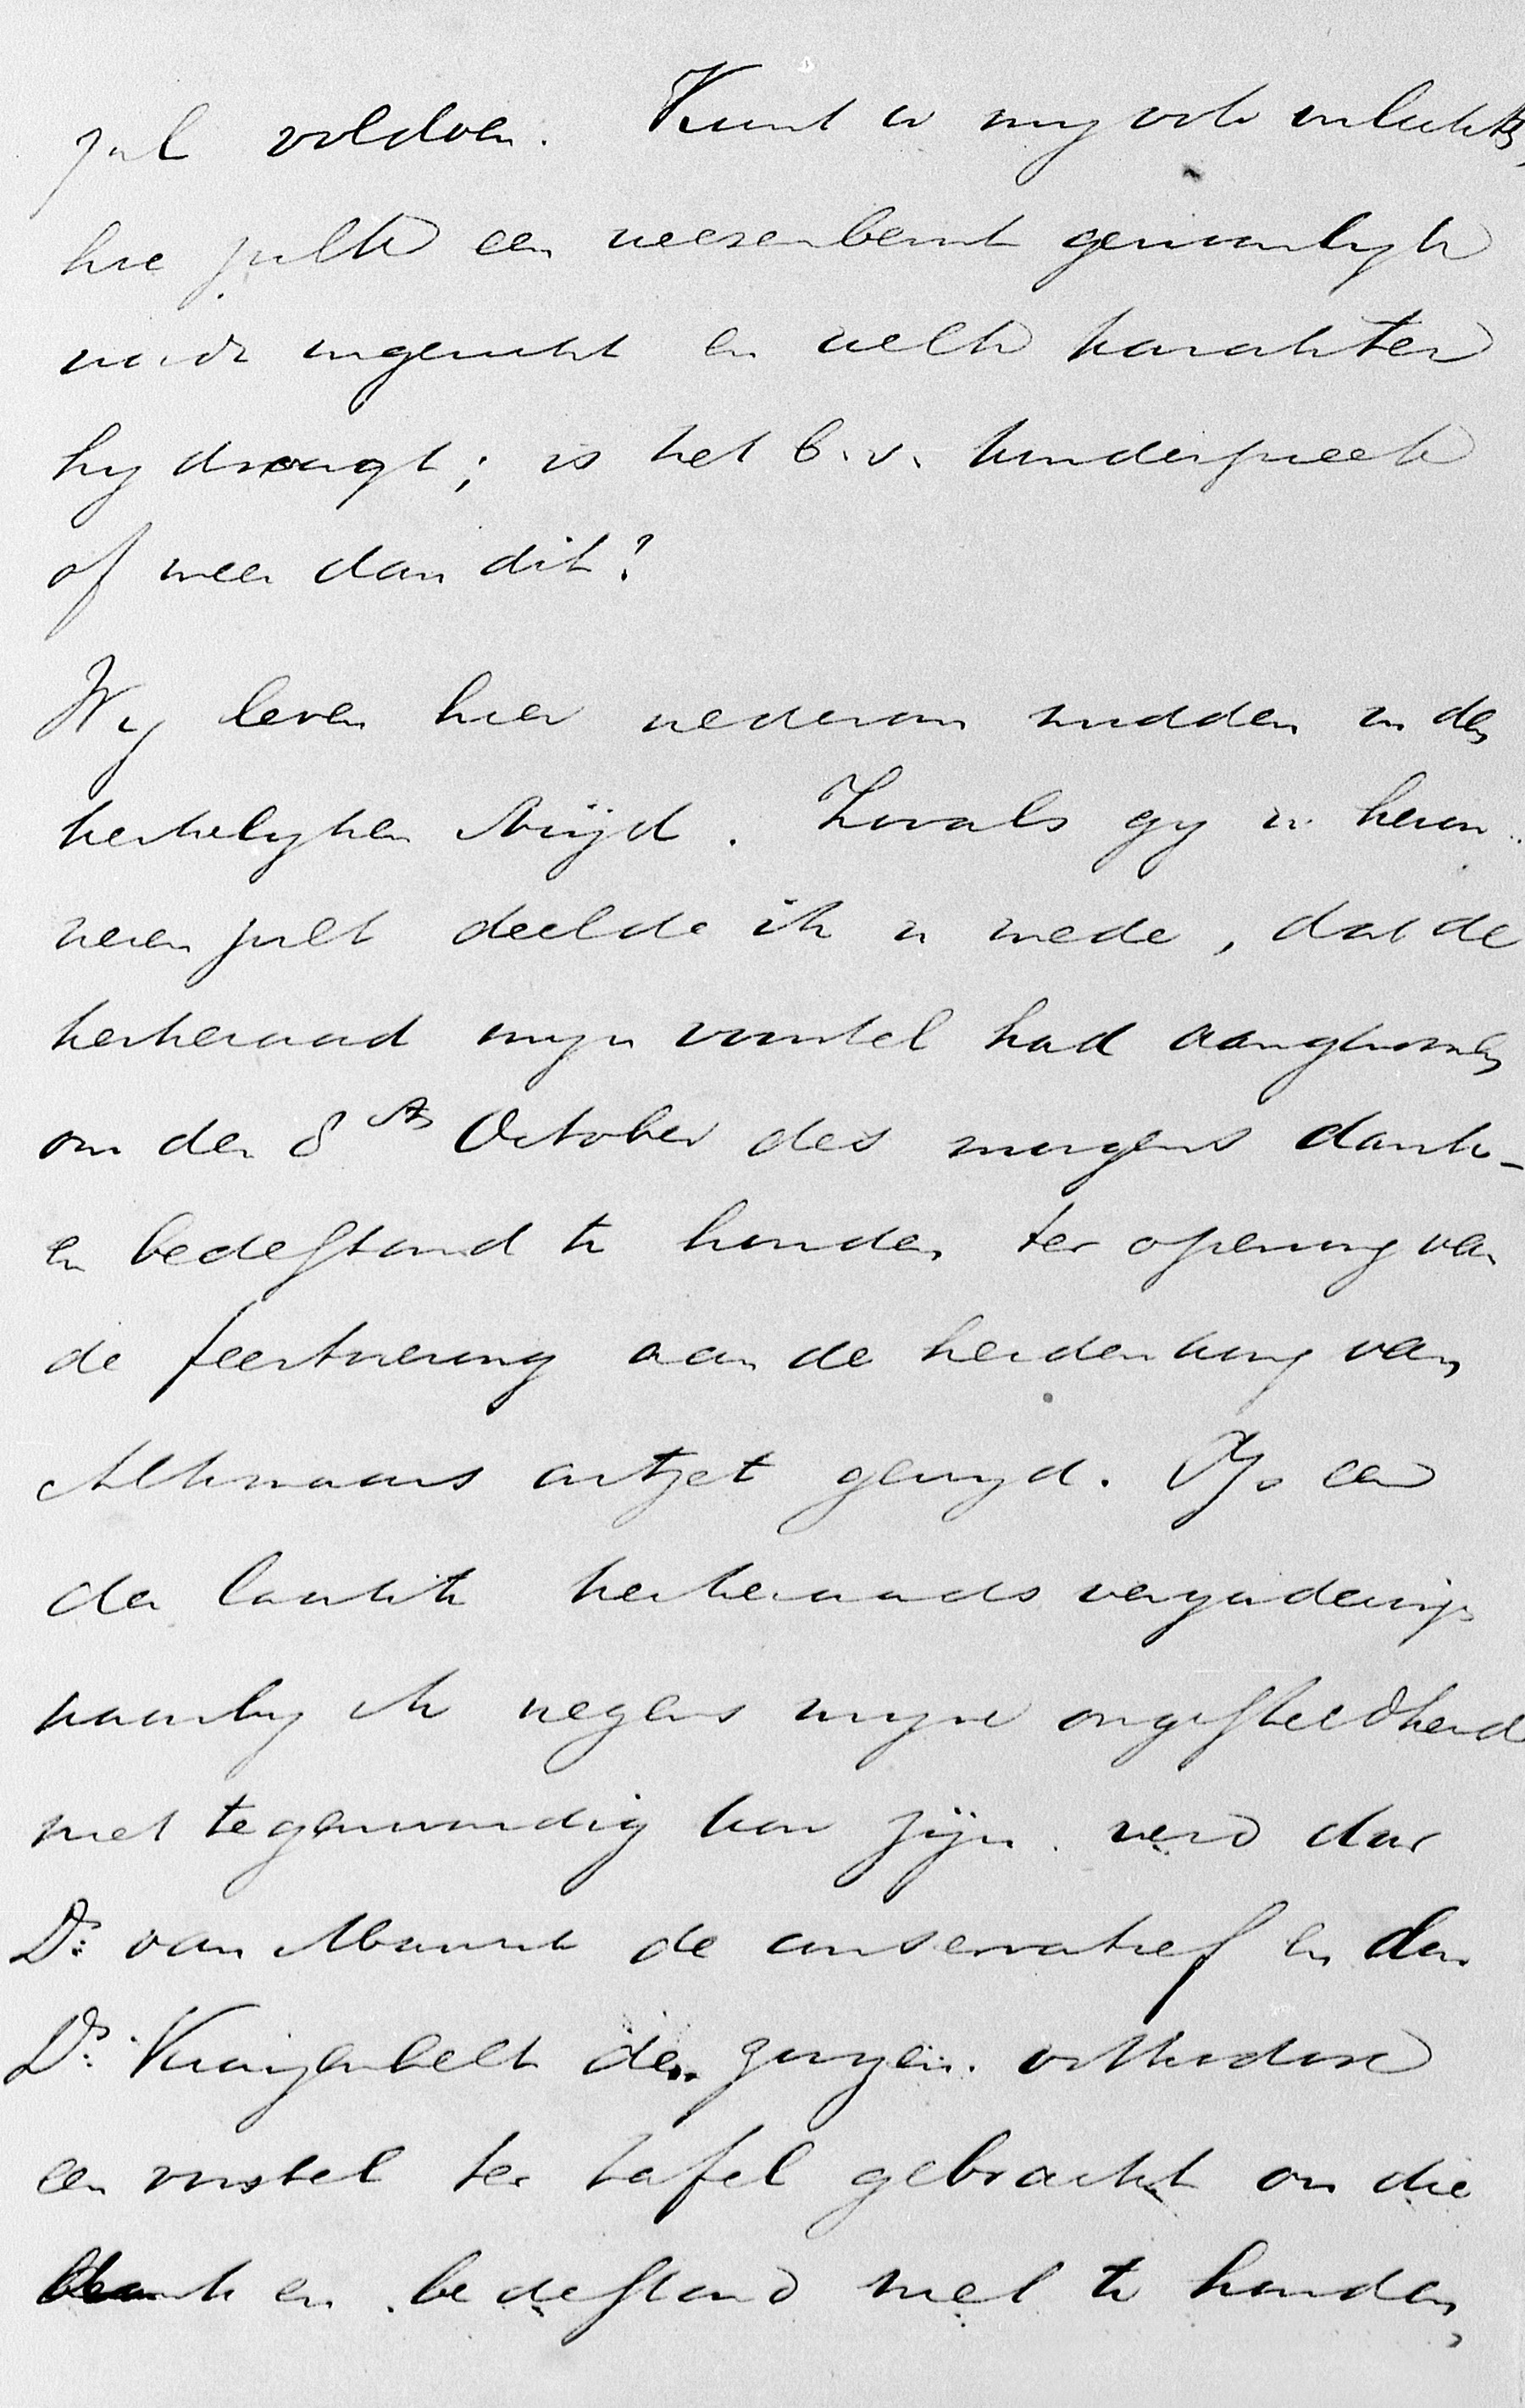 zal voldoen. Kunt u my ook inlichten,
hoe zulk een weezenbeurt gewoonlyk
wordt ingericht en welk karakter
hy draagt; is het b.v. kinderpreek
of meer dan dit?
Wy leven hier wederom midden in den
kerkelyken strijd. Zooals gy u herin-
neren zult deelde ik u mede, dat de
kerkeraad myn voorstel had aangenomen
om den 8sten October des morgens dank-
en bedestond te houden ter opening van
de feestviering aan de herdenking van
Alkmaars ontzet gewyd. Op een
der laatste kerkeraads vergaderings
waarby ik wegens myne ongesteldheid
niet tegenwoordig kon zijn werd door
Ds. van de conservatief en door
Ds. Kruyenbelt den zoogen. orthodoxe
een voorstel ter tafel gebracht om die
dank en bedestond niet te houden,